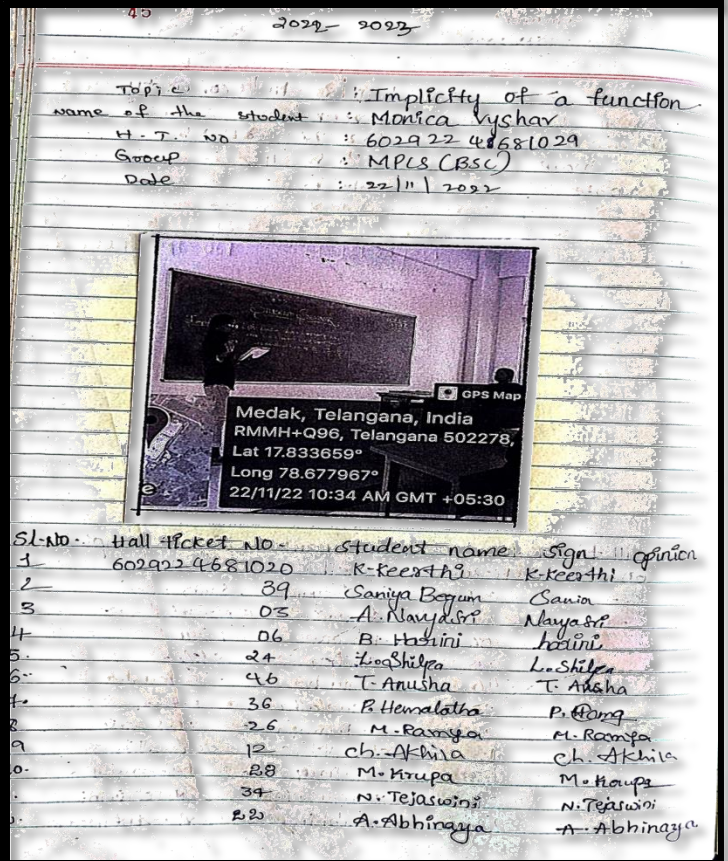 45
2022- 2023
Topic : Implicity of a function
Name of the student : Monica Vyshar
H.T. No : 602922 4681029
Group : MPCS (BSC)
Date : 22/11/2022
GPS Map
Medak, Telangana, India
RMMH+Q96, Telangana 502278,
Lat 17.833659°
Long 78.677967°
22/11/22 10:34 AM GMT +05:30
Sl.No. Hall ticket No. Student name Sign opinion
1 6029224681020 K-Keerthi K-Keerthi
2 39 Saniya Begum Sania
3 03 A. Navyasri Navyasri
4 06 B. Harini harini
5. 24 L. Shilpa L. Shilpa
6. 46 T. Anusha T. Ausha
7. 36 P. Hemalatha P. Hema
8 26 M. Ramya M. Ramya
9 12 Ch. Akhila Ch. Akhila
0. 28 M. Krupa M. Krupa
34 N. Tejaswini N. Tejaswini
22 A. Abhinaya A. Abhinaya